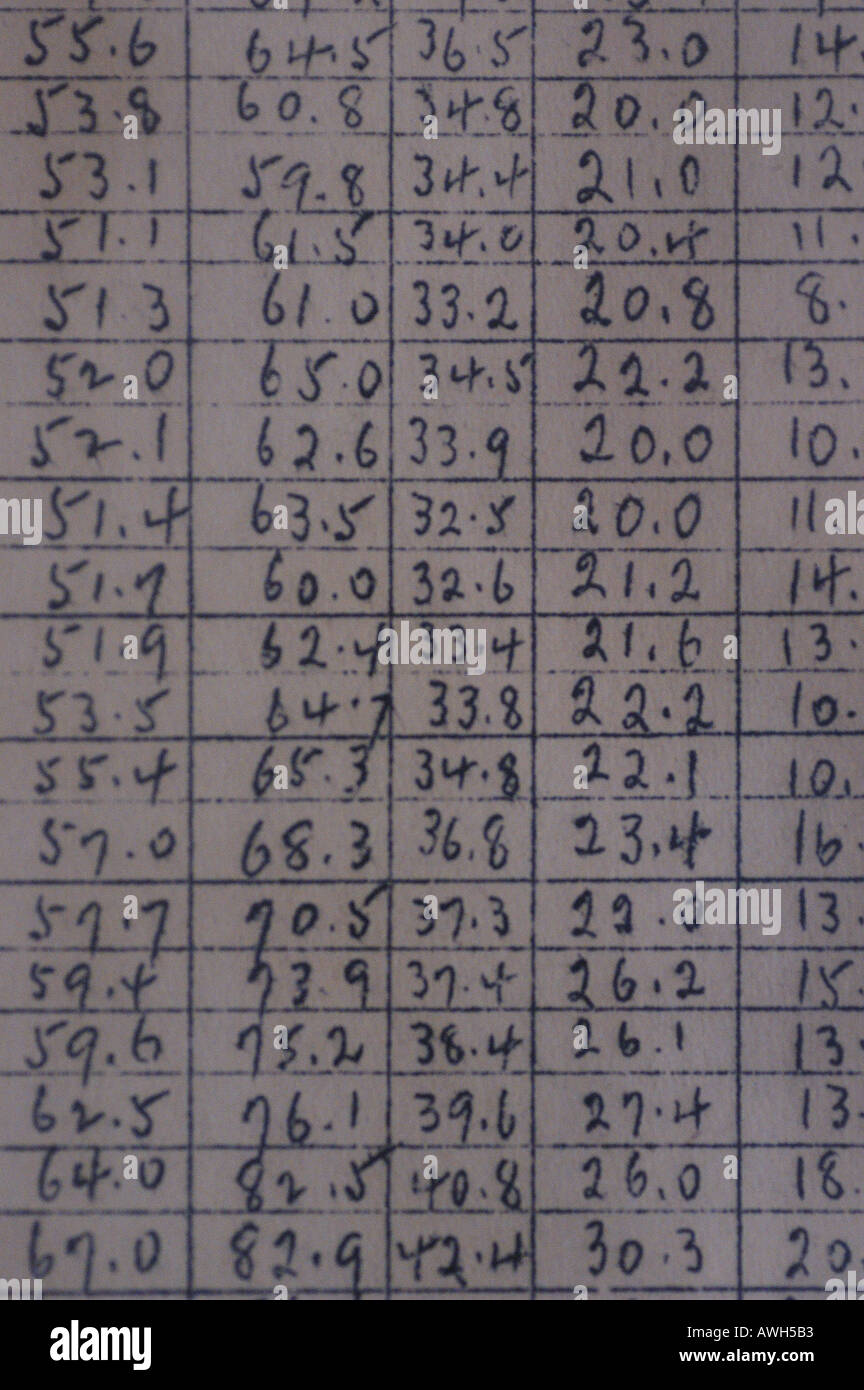 55.6 64.5 36.5 23.0 14.
53.8 60.8 34.8 20.0 12.
53.1 59.8 34.4 21.0 12
51.1 61.5 34.0 20.4 11.
51.3 61.0 33.2 20.8 8.
52.0 65.0 34.5 22.2 13.
52.1 62.6 33.9 20.0 10.
51.4 63.5 32.5 20.0 11
51.7 60.0 32.6 21.2 14.
51.9 62.4 33.4 21.6 13.
53.5 64.7 33.8 22.2 10.
55.4 65.3 34.8 22.1 10.
57.0 68.3 36.8 23.4 16.
57.7 70.5 37.3 22.0 13.
59.4 73.9 37.4 26.2 15.
59.6 75.2 38.4 26.1 13.
62.5 76.1 39.6 27.4 13.
64.0 82.5 40.8 26.0 18.
67.0 82.9 42.4 30.3 20.
alamy
a
alamy
Image ID: AWH5B3
www.alamy.com